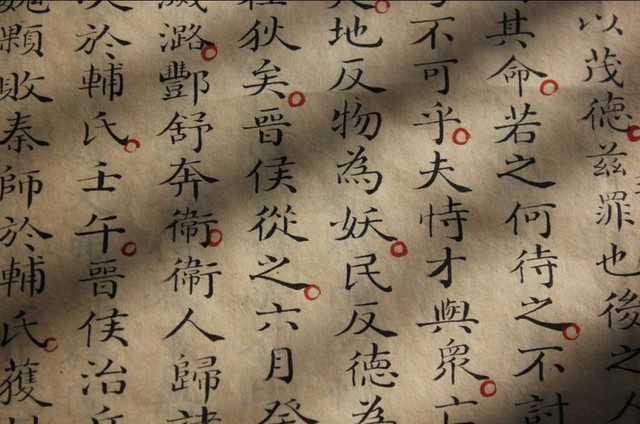 以茂德茲罪也後之人
其命若之何待之不討
不可乎夫恃才與衆亡
地反物為妖民反德為
狄矣晉侯從之六月癸
潞酆舒奔衛衛人歸諸
於輔氏壬午晉侯治兵
顆敗秦師於輔氏獲